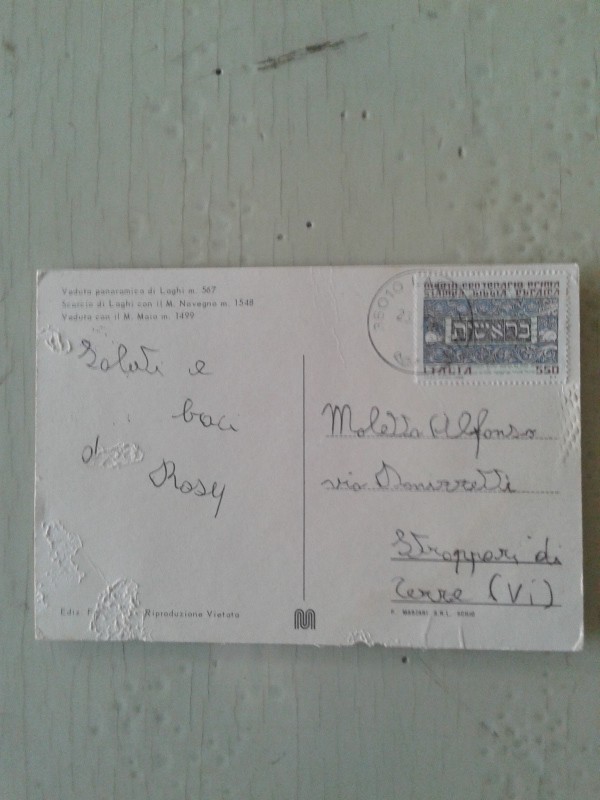 Veduta panoramica di Laghi m. 567
Scorcio di Laghi con il M. Novegno m. 1548
Veduta con il M. Maio m. 1499
Saluti e
baci
da
Rosy
Ediz.
Riproduzione Vietata
36010
QUINTO CENTENARIO PRIMA
STAMPA BIBBIA EBRAICA
בראשית
ITALIA 550
Moletta Alfonso
via Donizzetti
Stroppari di
Tezze (Vi)